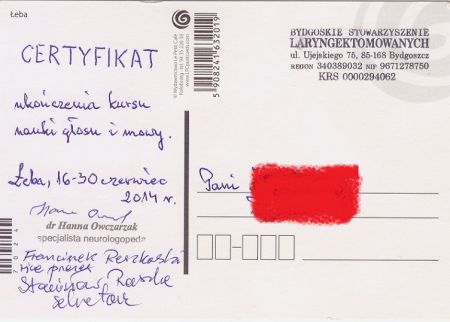 Łeba
CERTYFIKAT
ukończenia kursu
nauki głosu i mowy.
Łeba, 16-30 czerwiec
2014 r.
dr Hanna Owczarzak
specjalista neurologopeda
Franciszek Reszkowski
vice prezes
Stanisław
sekretarz
5908241632019
BYDGOSKIE STOWARZYSZENIE
LARYNGEKTOMOWANYCH
ul. Ujejskiego 75, 85-168 Bydgoszcz
REGON 340389032 NIP 9671278750
KRS 0000294062
Pani